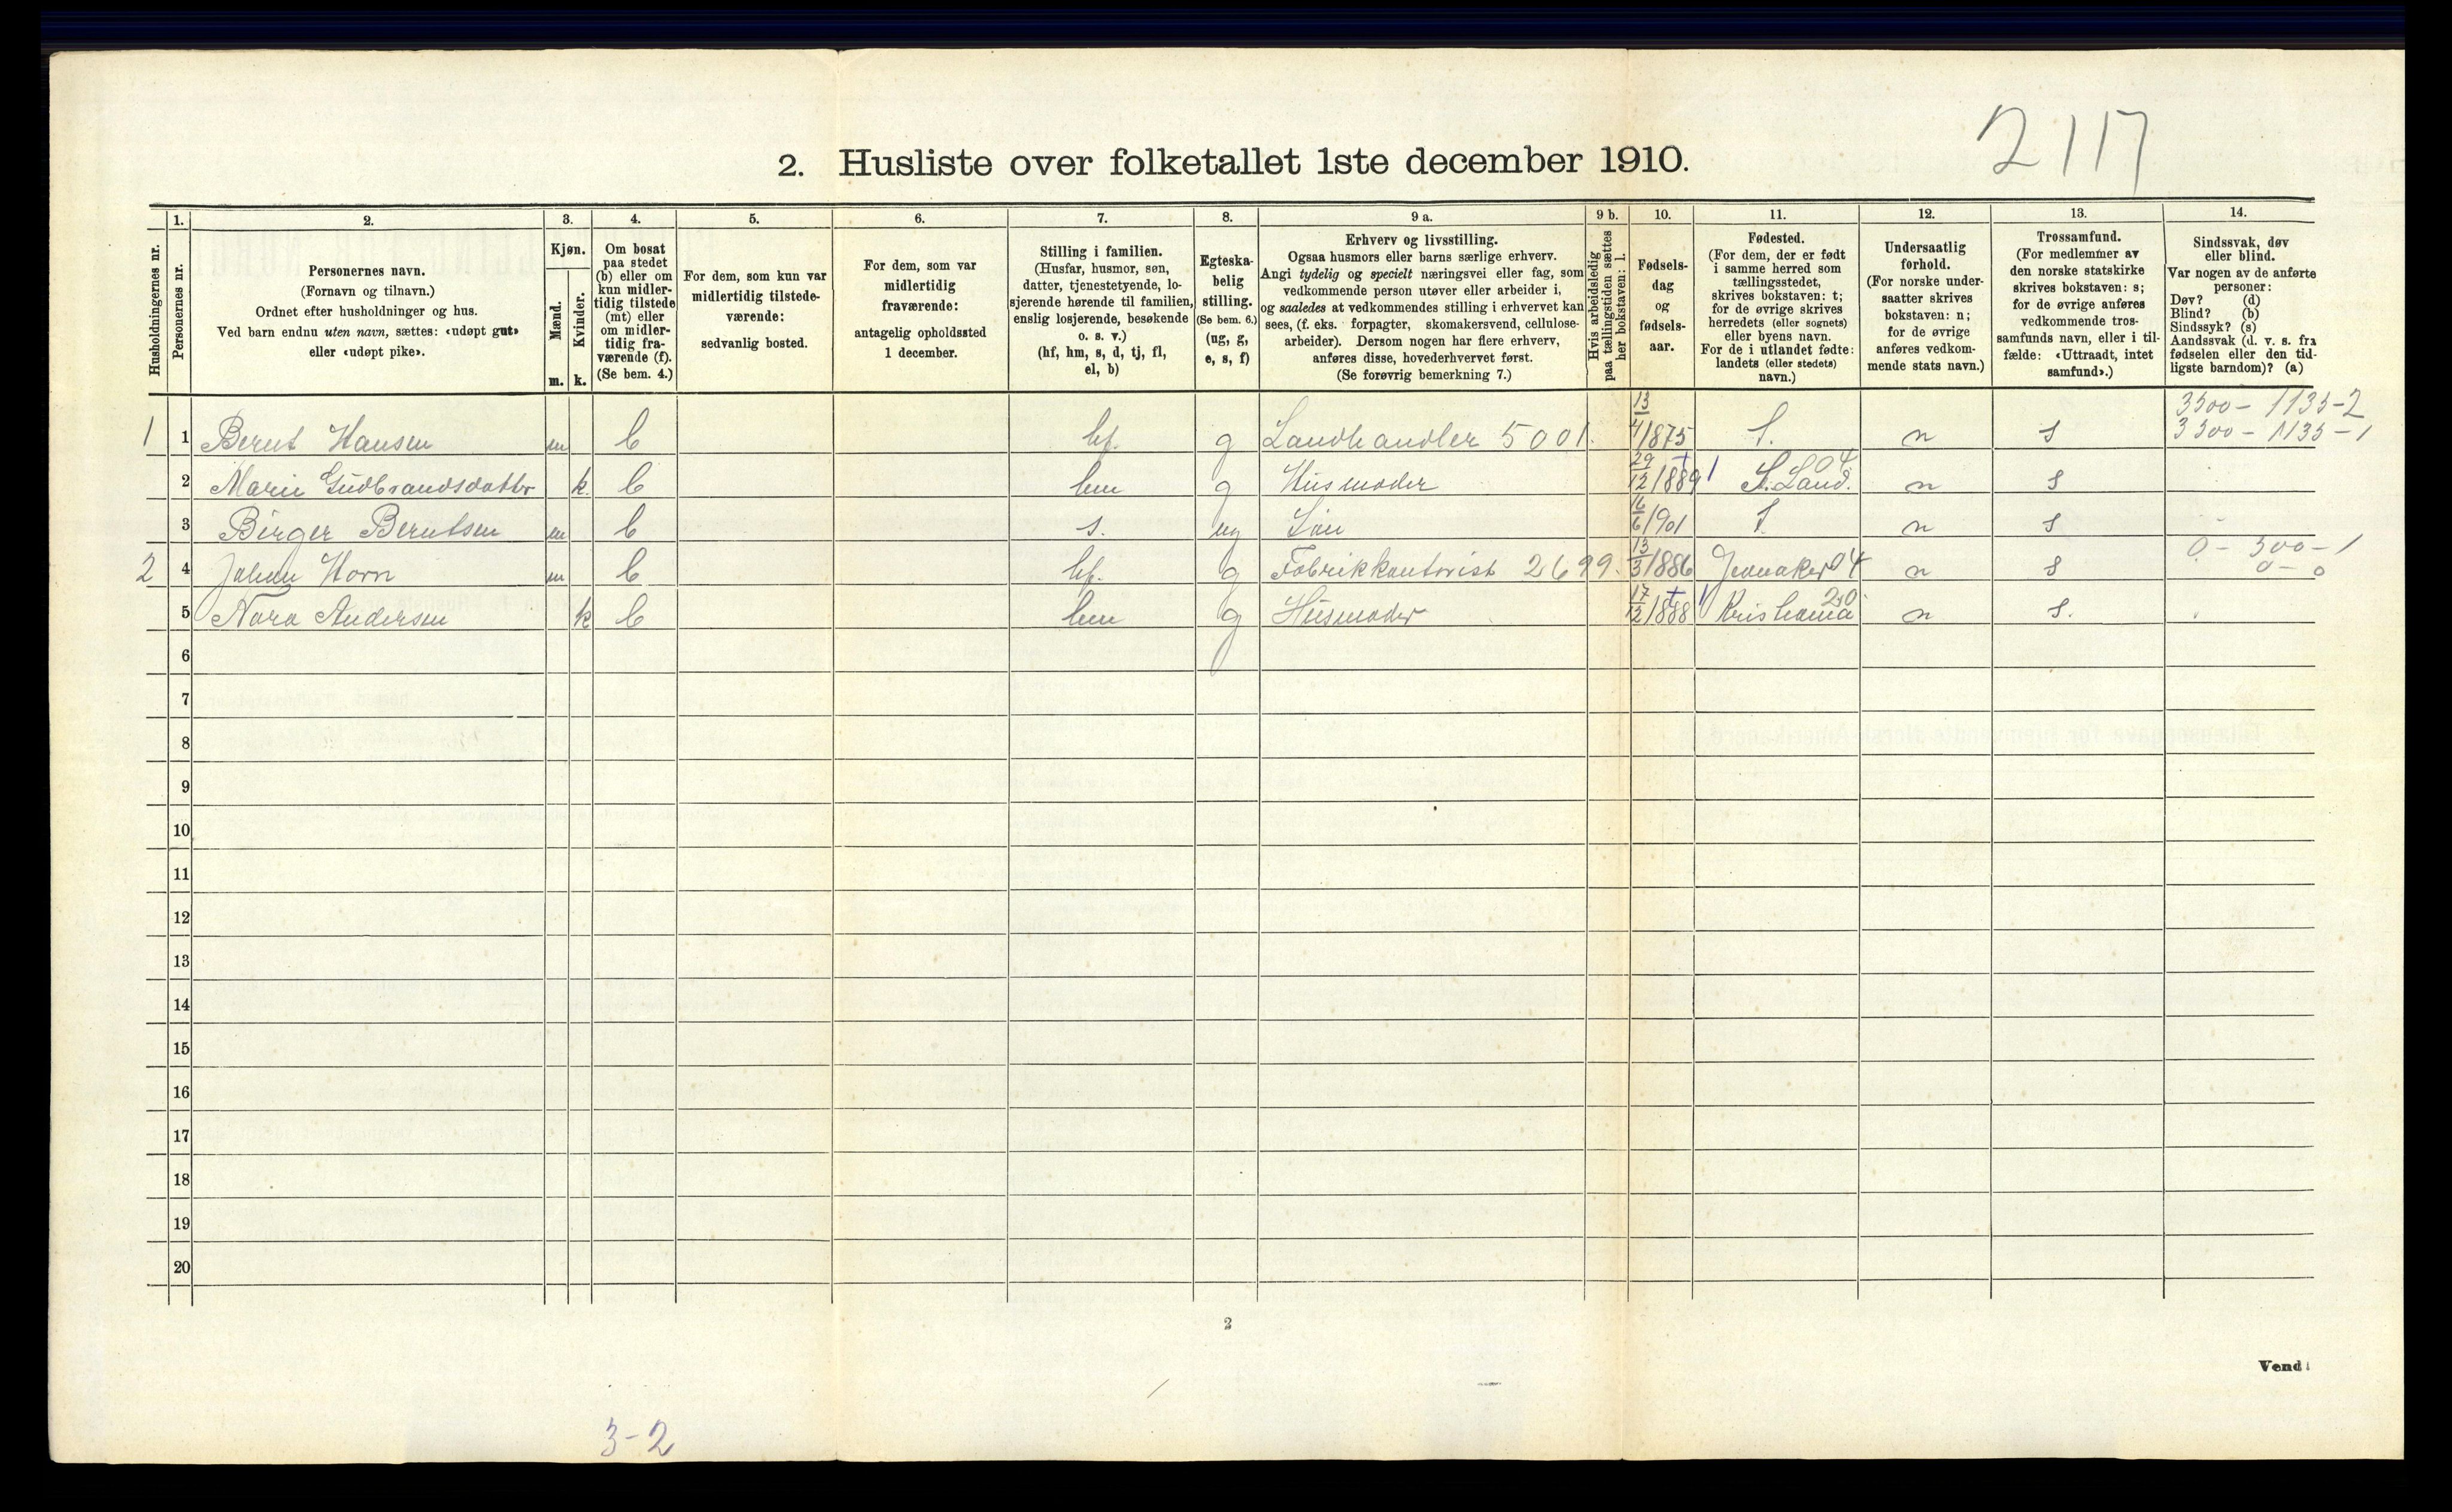 2117
2. Husliste over folketallet 1ste december 1910.
Husholdningernes nr.
1.
Personernes nr.
2.
Personernes navn.
(Fornavn og tilnavn.)
Ordnet efter husholdninger og hus.
Ved barn endnu uten navn, sættes: «udøpt gut»
eller «udøpt pike».
3.
Kjøn.
Mænd.
m.
Kvinder.
k.
4.
Om bosat
paa stedet
(b) eller om
kun midler-
tidig tilstede
(mt) eller
om midler-
tidig fra-
værende (f).
(Se bem. 4.)
5.
For dem, som kun var
midlertidig tilstede-
værende:
sedvanlig bosted.
6.
For dem, som var
midlertidig
fraværende:
antagelig opholdssted
1 december.
7.
Stilling i familien.
(Husfar, husmor, søn,
datter, tjenestetyende, lo-
sjerende hørende til familien,
enslig losjerende, besøkende
o. s. v.)
(hf, hm, s, d, tj, fl,
el, b)
8.
Egteska-
belig
stilling.
(Se bem. 6.)
(ug, g,
e, s, f)
9 a.
Erhverv og livsstilling.
Ogsaa husmors eller barns særlige erhverv.
Angi tydelig og specielt næringsvei eller fag, som
vedkommende person utøver eller arbeider i,
og saaledes at vedkommendes stilling i erhvervet kan
sees, (f. eks. forpagter, skomakersvend, cellulose-
arbeider). Dersom nogen har flere erhverv,
anføres disse, hovederhvervet først.
(Se forøvrig bemerkning 7.)
9 b.
Hvis arbeidsledig
paa tællingstiden sættes
her bokstaven: l.
10.
Fødsels-
dag
og
fødsels-
aar.
11.
Fødested.
(For dem, der er født
i samme herred som
tællingsstedet,
skrives bokstaven: t;
for de øvrige skrives
herredets (eller sognets)
eller byens navn.
For de i utlandet fødte:
landets (eller stedets)
navn.)
12.
Undersaatlig
forhold.
(For norske under-
saatter skrives
bokstaven: n;
for de øvrige
anføres vedkom-
mende stats navn.)
13.
Trossamfund.
(For medlemmer av
den norske statskirke
skrives bokstaven: s;
for de øvrige anføres
vedkommende tros-
samfunds navn, eller i til-
fælde: «Uttraadt, intet
samfund».)
14.
Sindssvak, døv
eller blind.
Var nogen av de anførte
personer:
Døv? (d)
Blind? (b)
Sindssyk? (s)
Aandssvak (d. v. s. fra
fødselen eller den tid-
ligste barndom)? (a)
3500 - 1135-2
1 1 Bernt Hansen m b hf. g Landhandler 5001. 13/4 1875 t. n s 3300 - 1135-1
2 Marie Gudbrandsdatter k. b hm g Husmoder 29/12 1889 S. Land. 04 n s
3 Birger Berntsen m b s. ug Søn 16/6 1901 t n s
2 4 Johan Horn m b hf. g Fabrikkontorist 2699. 13/3 1886 Jevnaker 04 n s 0 - 300 - 1
0 - 0
5 Nora Andersen k b hm g Husmoder 17/12 1888 Kristiania 20 n s.
6
7
8
9
10
11
12
13
14
15
16
17
18
19
20
2
Vend!
3-2